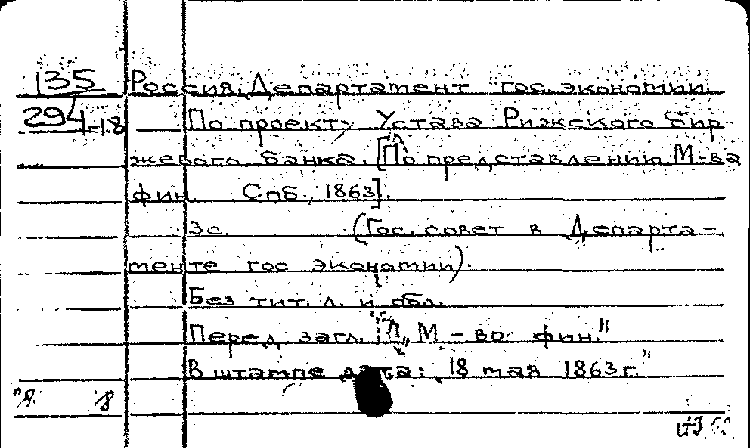 135
294-18
Россия. Департамент гос. экономии.
По проекту Устава Рижского бир-
жевого банка. [По представлению М-ва
фин. Спб., 1863].
3с. (Гос. совет в Департа-
менте гос экономии).
Без тит. л. и обл.
Перед загл.: М-во фин."
В штампе дата: 18 мая 1863г."